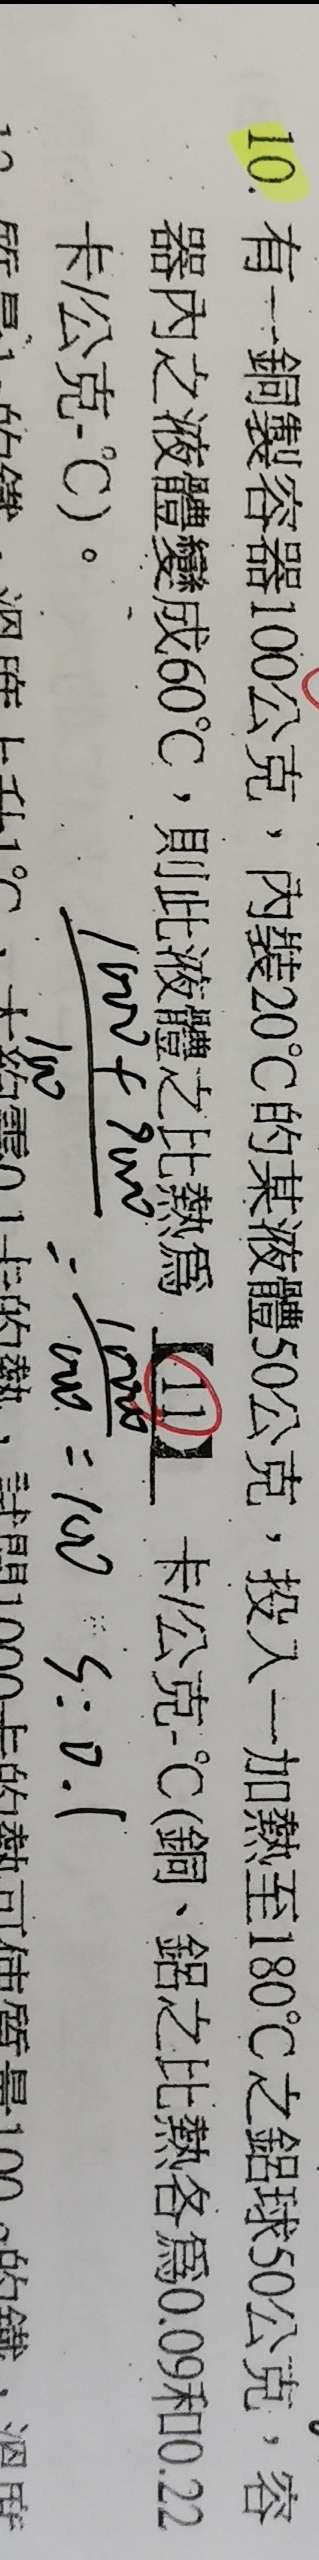 10. 有一銅製容器100公克，內裝20℃的某液體50公克，投入一加熱至180℃之鋁球50公克，容
器內之液體變成60℃，則此液體之比熱為【11】卡/公克-℃(銅、鋁之比熱各為0.09和0.22
卡/公克-℃)。
= 100 S:0.1
上升1℃，大約需0.1卡的熱，試問1000卡的熱可使質量100